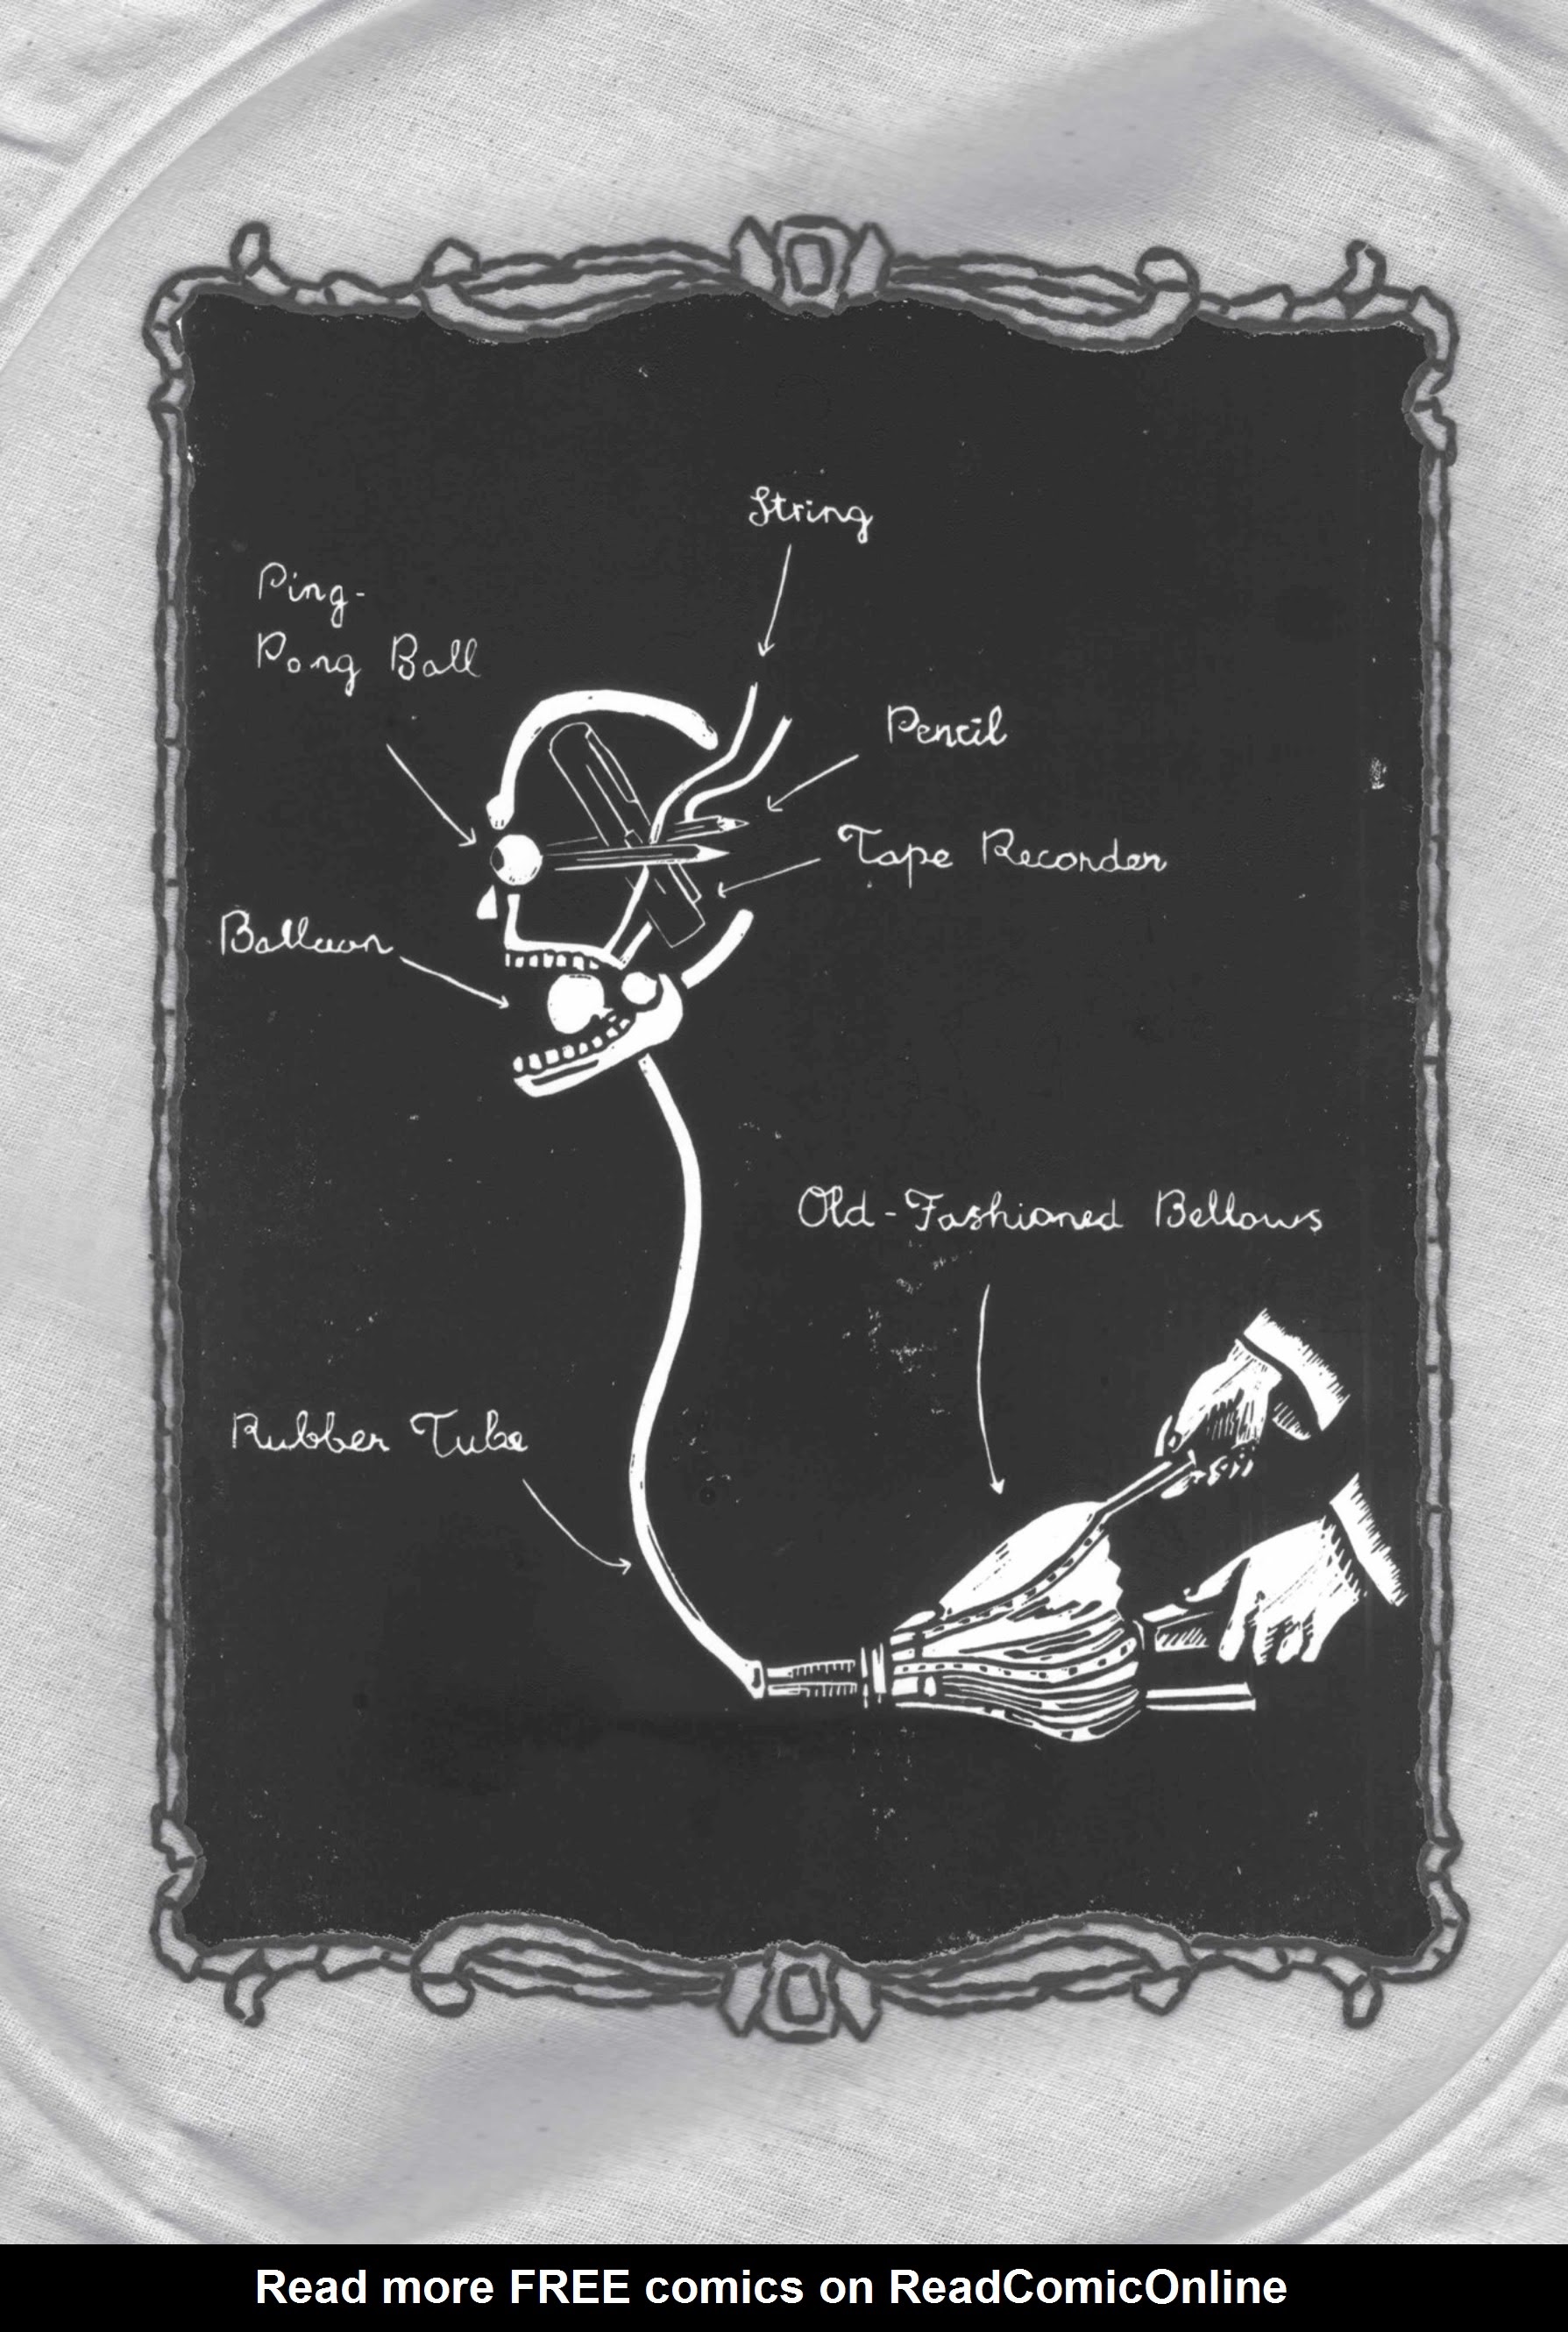 String
Ping-
Pong Ball
Pencil
Tape Recorder
Balloon
Old-Fashioned Bellows
Rubber Tube
Read more FREE comics on ReadComicOnline